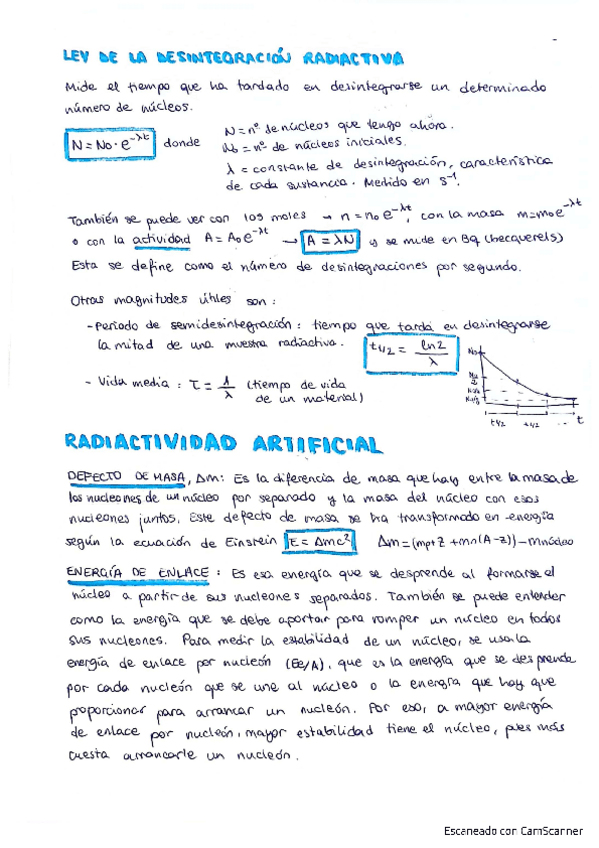 LEY DE LA DESINTEGRACIÓN RADIACTIVA
Mide el tiempo que ha tardado en desintegrarse un determinado
número de núcleos.
N = No · e^-λt donde
N = nº de núcleos que tengo ahora.
No = nº de núcleos iniciales.
λ = constante de desintegración, característica
de cada sustancia. Medido en s⁻¹.
También se puede ver con los moles → n = no e^-λt, con la masa m = mo e^-λt
o con la actividad A = Ao e^-λt → A = λN y se mide en Bq (becquerels)
Esta se define como el número de desintegraciones por segundo.
Otras magnitudes útiles son:
- Periodo de semidesintegración: tiempo que tarda en desintegrarse
la mitad de una muestra radiactiva. t1/2 = ln2/λ
- Vida media: τ = 1/λ (tiempo de vida
de un material)
No
t1/2 t1/2 t
RADIACTIVIDAD ARTIFICIAL
DEFECTO DE MASA, Δm: Es la diferencia de masa que hay entre la masa de
los nucleones de un núcleo por separado y la masa del núcleo con esos
nucleones juntos. Este defecto de masa se ha transformado en energía
según la ecuación de Einstein E = Δmc² Δm = (mp·Z + mn(A-Z)) - mnúcleo
ENERGÍA DE ENLACE: Es esa energía que se desprende al formarse el
núcleo a partir de sus nucleones separados. También se puede entender
como la energía que se debe aportar para romper un núcleo en todos
sus nucleones. Para medir la estabilidad de un núcleo, se usa la
energía de enlace por nucleón (Ee/A), que es la energía que se desprende
por cada nucleón que se une al núcleo o la energía que hay que
proporcionar para arrancar un nucleón. Por eso, a mayor energía
de enlace por nucleón, mayor estabilidad tiene el núcleo, pues más
cuesta arrancarle un nucleón.
Escaneado con CamScanner